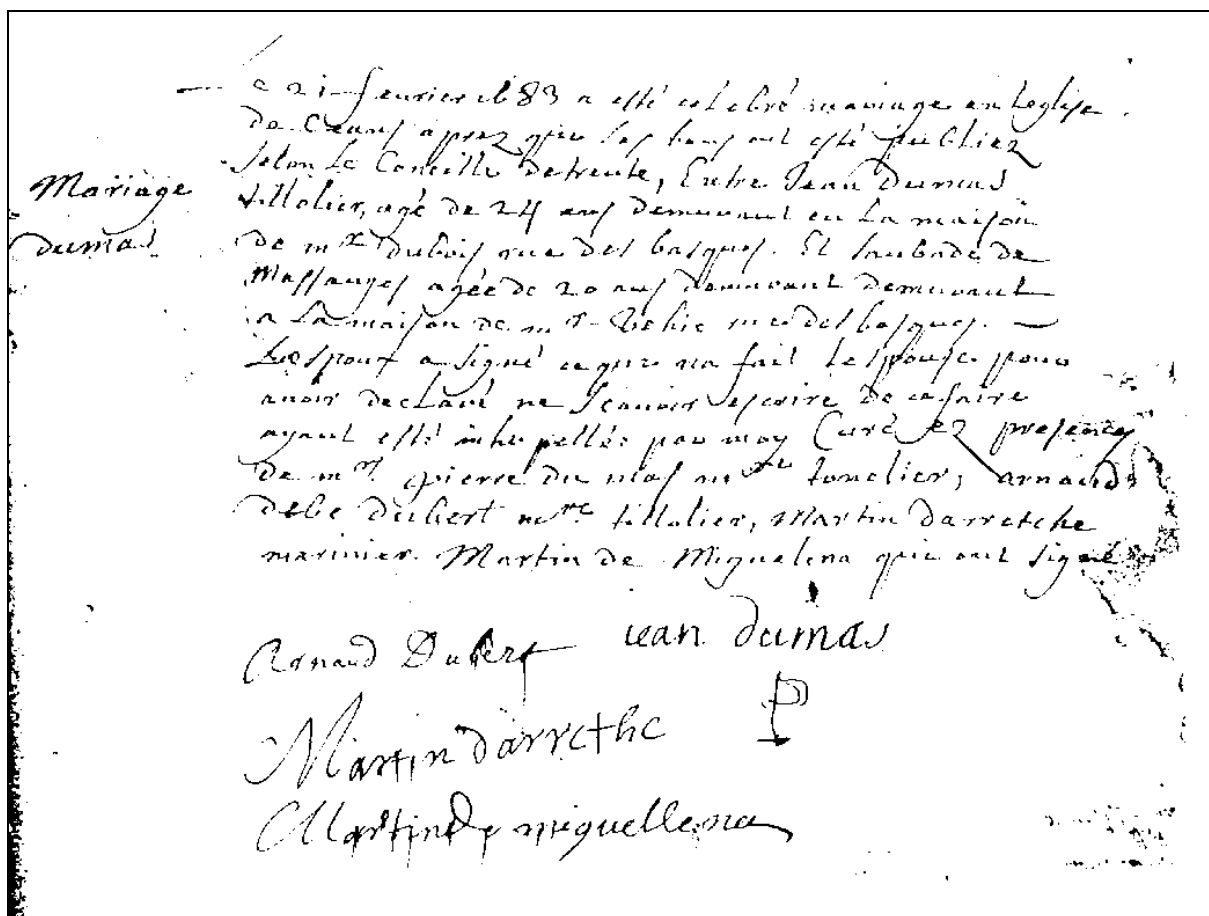 Mariage
dumas
Le 21 feurier 1683 a esté celebré mariage en Leglise
de Ceans aprez que les bans ont esté publiez
selon Le Concille detrente, Entre Jean Dumas
tillolier, agé de 24 ans demurant en La maison
de mr dubois rue des basques. Et saubade de
Massanges agée de 20 ans demurant demurant
a La maison de mr rue des basques.
Lespoux a signé ce que na fait Lespouse pour
auoir declaré ne scauoir escrire de ce faire
ayant esté interpellés par moy Curé ez presences
de mr pierre du mas mre tonelier, arnaud
debe dubert mre tillolier, Martin darretche
marinier Martin de Miguelena qui ont signé
Arnaud Dubert jean dumas
Martin darrethe P
Martin de miguellena